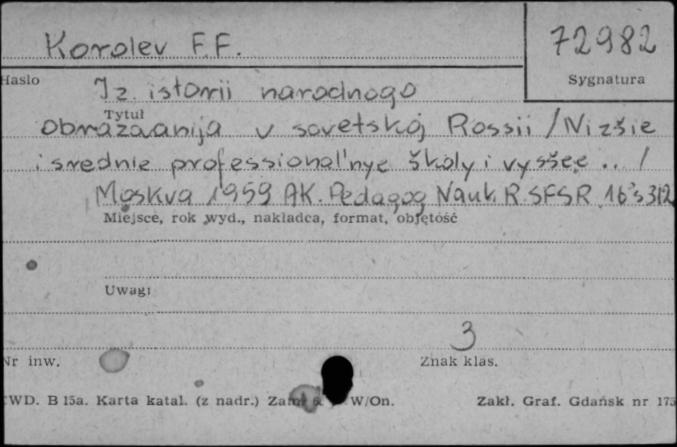 Korolev F.F.
72982
Hasło
Sygnatura
Iz istorii narodnogo
Tytuł
obrazavanija v sovetskoj Rossii /Nizšie
i srednie professional'nye školy i vysšee .. /
Moskva 1959 AK. Pedagog Nauk. R.SFSR 16° s 312
Miejsce, rok wyd., nakładca, format, objętość
Uwagi
3
Nr inw.
Znak klas.
CWD. B 15a. Karta katal. (z nadr.) Zam. W/On.
Zakł. Graf. Gdańsk nr 175